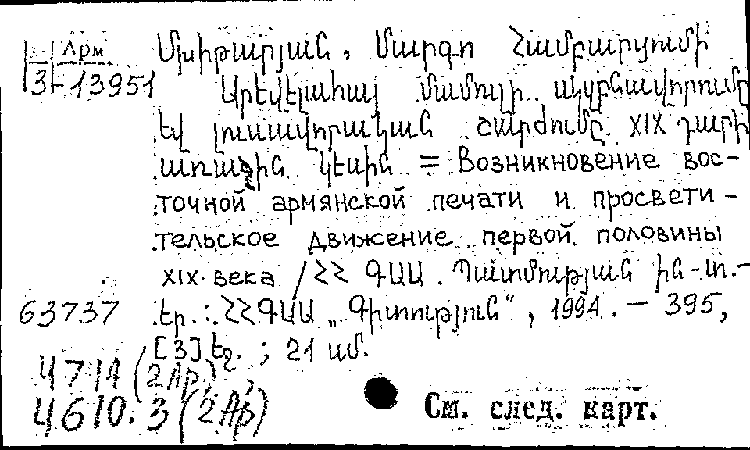 Арм
3-13951
Մխիթարյան, Մարգո Համբարձումի
Արևելահայ մամուլի սկզբնավորումը
եվ լուսավորական շարժումը XIX դարի
առաջին կեսին = Возникновение вос-
точной армянской печати и просвети-
тельское движение первой половины
XIX века / ՀՀ ԳԱԱ. Պատմության ին-տ.-
63737 Եր.: ՀՀ ԳԱԱ „Գիտություն", 1994. - 395,
[3] էջ. ; 21 սմ.
Ч71Д (2Ар),
Ч610.3 (2Ар)
См. след. карт.